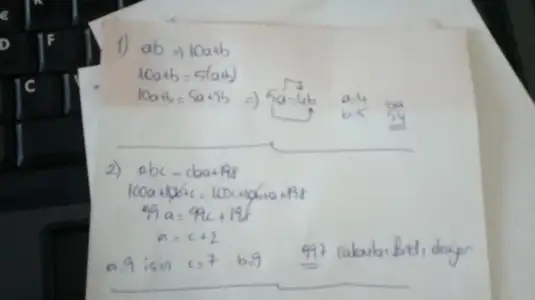 1) ab => 10a+b
10a+b = 5(a+b)
10a+b = 5a+5b => 5a=4b a=4 ba
b=5 54
2) abc = cba+198
100a+10b+c = 100c+10b+a+198
99a = 99c+198
a = c+2
a=9 için c=7 b=9 997